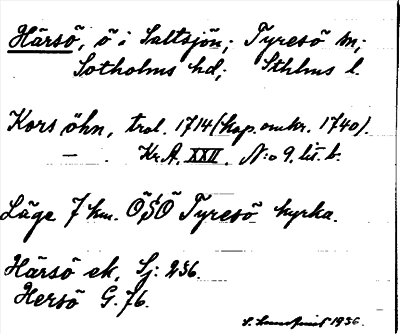 Härsö, ö i Saltsjön; Tyresö sn;
Sotholms hd; Sthlms l.
Korsöhn, trol. 1714 (kop. omkr. 1740).
— . Kr.A. XXII. N:o 9. lit. b.
Läge 7 km. ÖSÖ Tyresö kyrka.
Härsö ek, Sj: 236.
Hersö G. 76.
1936.